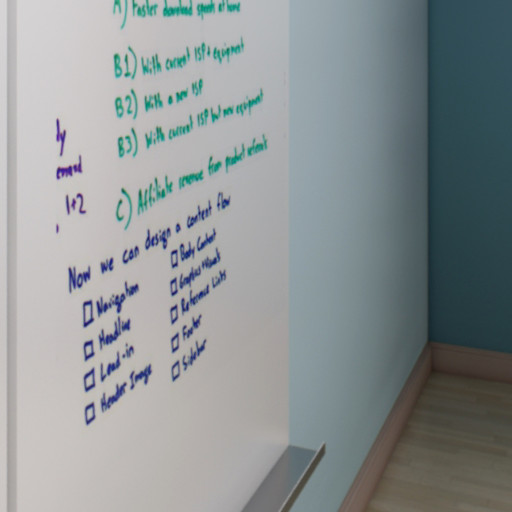 A) Faster download speeds at home
B1) With current ISP + equipment
B2) With a new ISP
B3) With current ISP but new equipment
C) Affiliate revenue from product referrals
ly
1+2
Now we can design a content flow
Navigation
Headline
Lead-in
Header Image
Body Content
Graphics + Visuals
Reference Lists
Footer
Sidebar